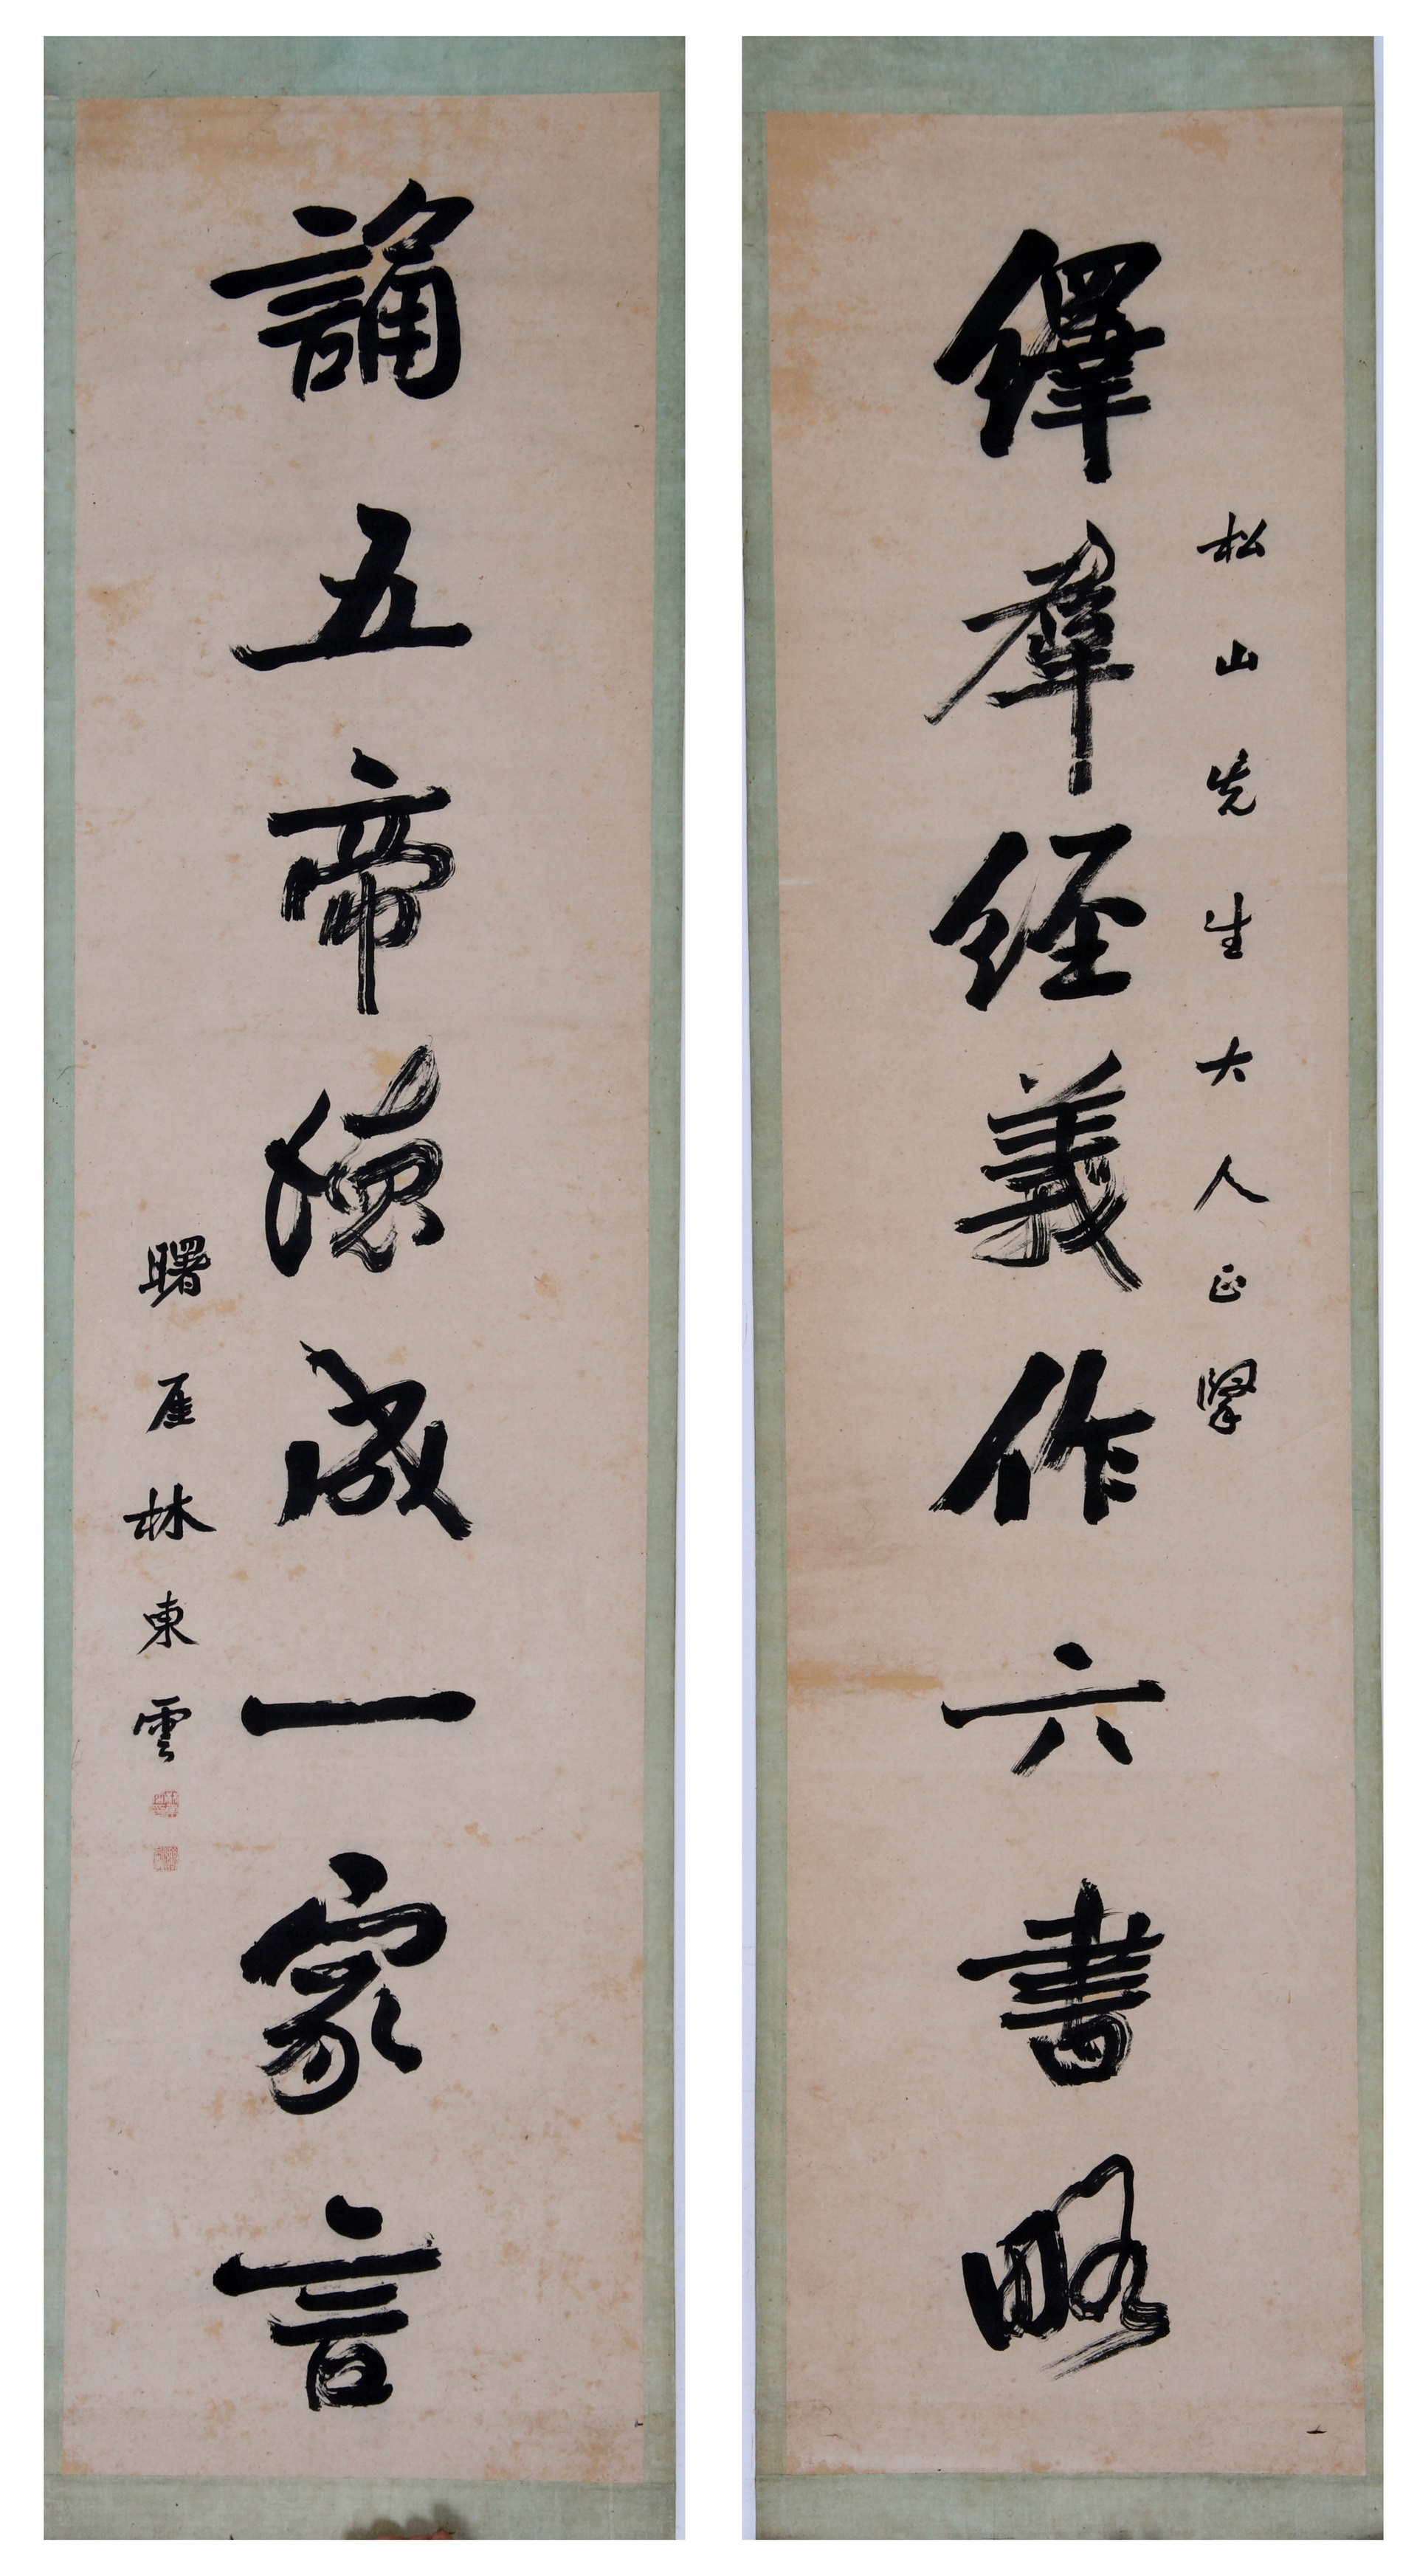 松山先生大人正擥
繹羣經義作六書略
誦五帝德成一家言
曙厓林東雲